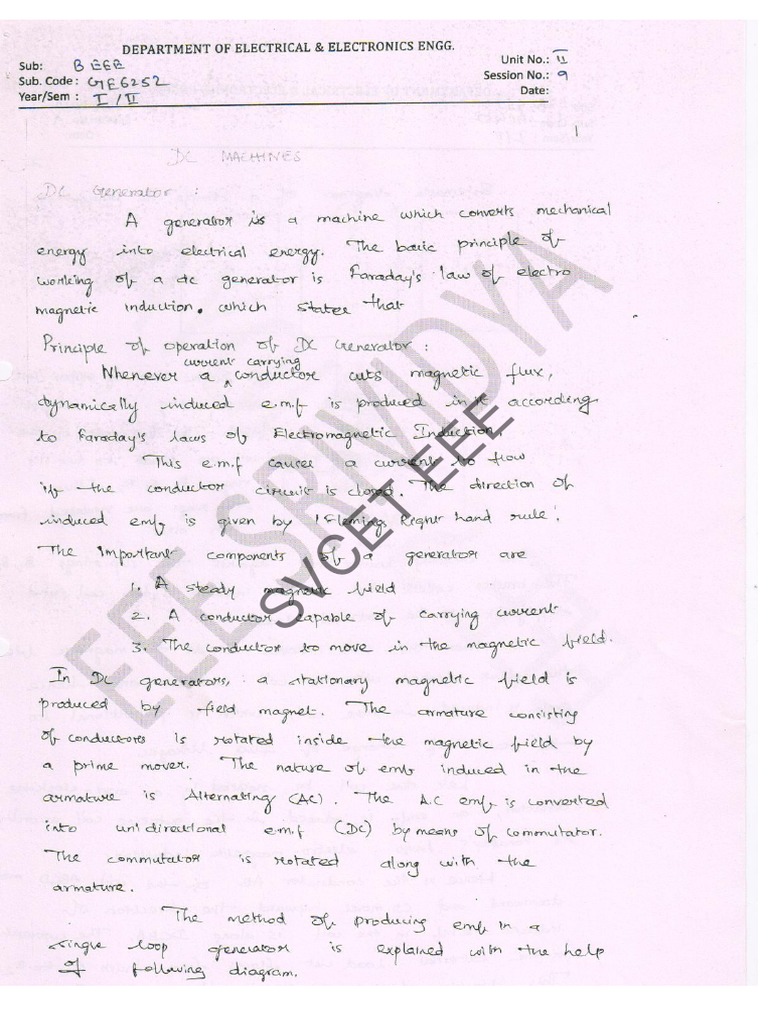 DEPARTMENT OF ELECTRICAL & ELECTRONICS ENGG.
Sub: BEEE Unit No.: II
Sub. Code: GE6252 Session No.: 9
Year/Sem : I/II Date:
1
DC MACHINES
DC Generator :
A generator is a machine which converts mechanical
energy into electrical energy. The basic principle of
working of a dc generator is Faraday's law of electro
magnetic induction. which states that
Principle of operation of DC Generator :
current carrying
Whenever a conductor cuts magnetic flux,
dynamically induced e.m.f is produced in it according
to Faraday's laws of Electromagnetic Induction.
This e.m.f causes a current to flow
if the conductor circuit is closed. The direction of
induced emf is given by 'Flemings Right hand rule'.
The Important components of a generator are
1. A steady magnetic field
2. A conductor capable of carrying current
3. The conductor to move in the magnetic field.
In DC generators, a stationary magnetic field is
produced by field magnet. The armature consisting
of conductors is rotated inside the magnetic field by
a prime mover. The nature of emf induced in the
armature is Alternating (AC). The A.C emf is converted
into unidirectional e.m.f (DC) by means of commutator.
The commutator is rotated along with the
armature.
The method of producing emf in a
single loop generator is explained with the help
of following diagram.
EEE SRIVIDYA
SVCET EEE